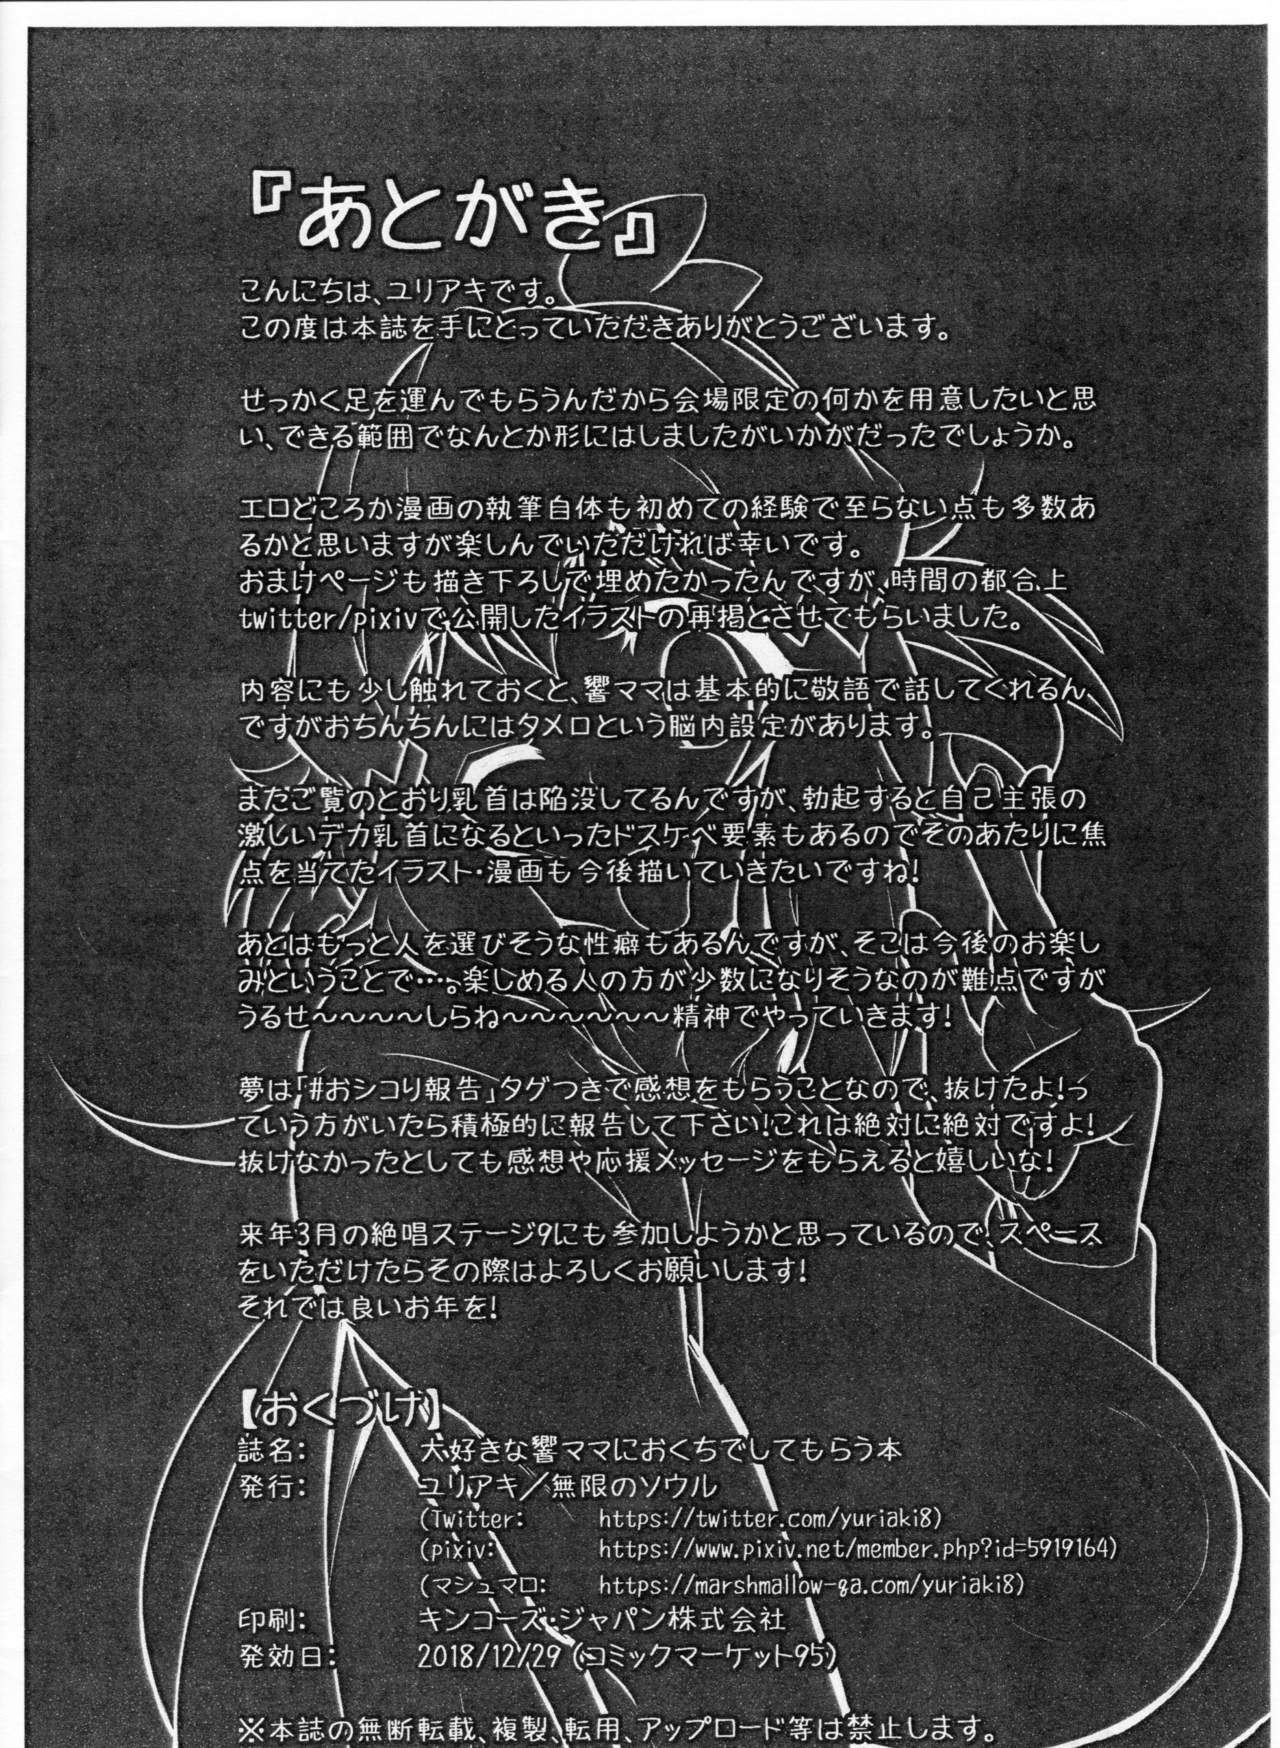 『あとがき』
こんにちは、ユリアキです。
この度は本誌を手にとっていただきありがとうございます。
せっかく足を運んでもらうんだから会場限定の何かを用意したいと思
い、できる範囲でなんとか形にはしましたがいかがだったでしょうか。
エロどころか漫画の執筆自体も初めての経験で至らない点も多数あ
るかと思いますが楽しんでいただければ幸いです。
おまけページも描き下ろしで埋めたかったんですが、時間の都合上
twitter/pixivで公開したイラストの再掲とさせてもらいました。
内容にも少し触れておくと、響ママは基本的に敬語で話してくれるん
ですがおちんちんにはタメ口という脳内設定があります。
まだご覧のとおり乳首は陥没してるんですが、勃起すると自己主張の
激しいデカ乳首になるといったドスケベ要素もあるのでそのあたりに焦
点を当てたイラスト・漫画も今後描いていきたいですね!
あとはもっと人を選びそうな性癖もあるんですが、そこは今後のお楽し
みということで…。楽しめる人の方が少数になりそうなのが難点ですが
うるせ～～～～しらね～～～～～～精神でやっていきます!
夢は「#おシコり報告」タグつきで感想をもらうことなので、抜けたよ!っ
ていう方がいたら積極的に報告して下さい!これは絶対に絶対ですよ!
抜けなかったとしても感想や応援メッセージをもらえると嬉しいな!
来年3月の絶唱ステージ9にも参加しようかと思っているので、スペース
をいただけたらその際はよろしくお願いします!
それでは良いお年を!
【おくづけ】
誌名: 大好きな響ママにおくちでしてもらう本
発行: ユリアキ/無限のソウル
(Twitter: https://twitter.com/yuriaki8)
(pixiv: https://www.pixiv.net/member.php?id=5919164)
(マシュマロ: https://marshmallow-qa.com/yuriaki8)
印刷: キンコーズ・ジャパン株式会社
発効日: 2018/12/29 (コミックマーケット95)
※本誌の無断転載、複製、転用、アップロード等は禁止します。